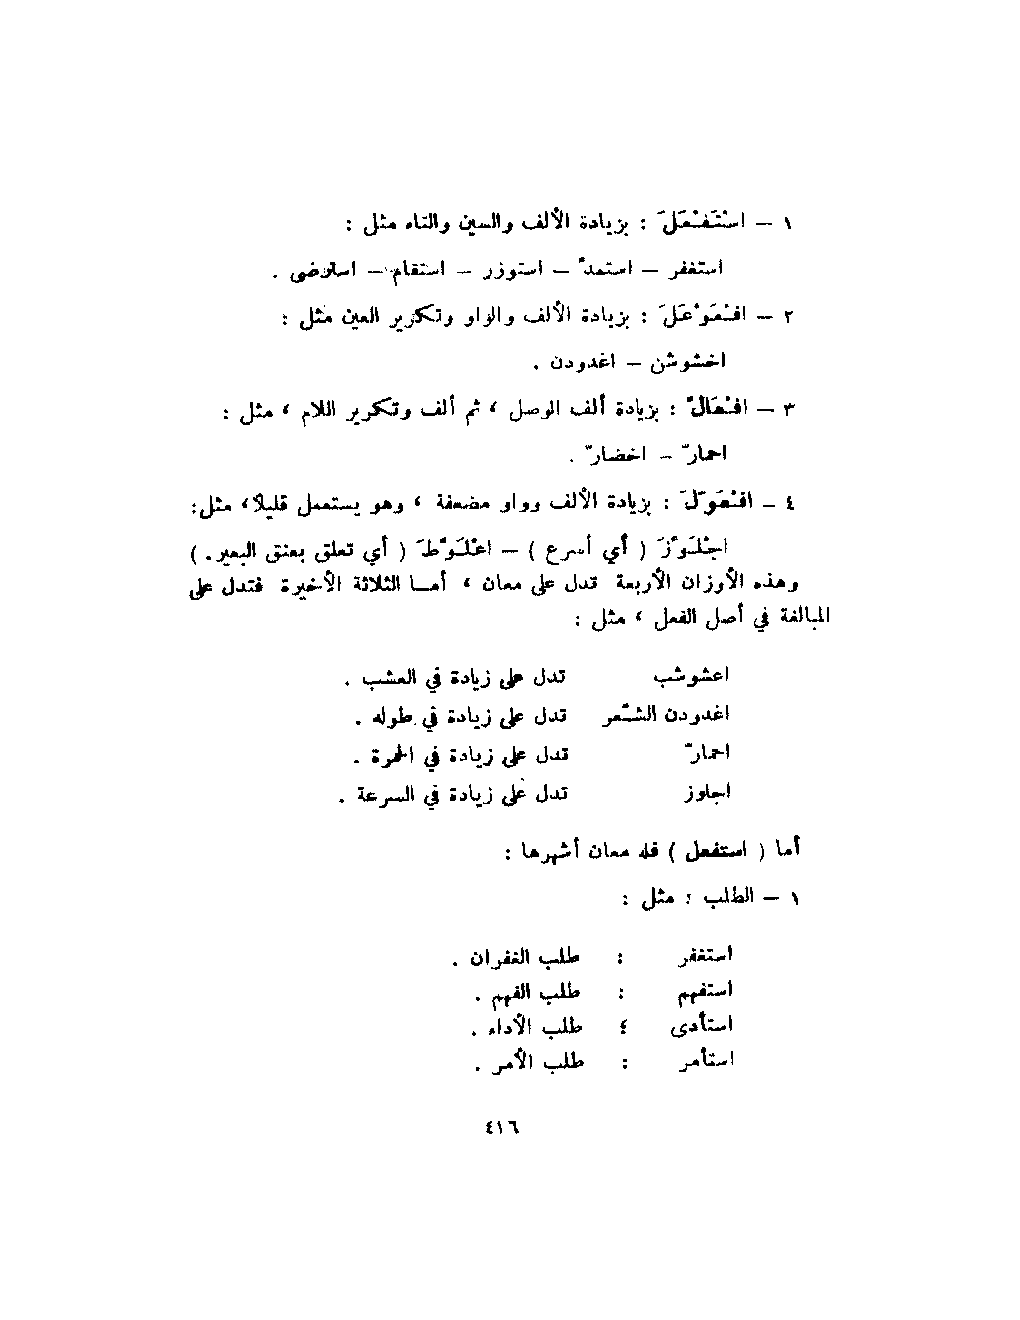 ١ – اسْتَفْعَلَ : بزيادة الألف والسين والتاء مثل :
استغفر – استمدّ – استوزر – استقام – استرضى .
٢ – افْعَوْعَلَ : بزيادة الألف والواو وتكرير العين مثل :
اخشوشن – اغدودن .
٣ – افْعَالَّ : بزيادة ألف الوصل ، ثم ألف وتكرير اللام ، مثل :
احمارّ – اخضارّ .
٤ – افْعَوَّلَ : بزيادة الألف وواو مضعفة ، وهو يستعمل قليلاً ، مثل :
اجْلَوَّزَ ( أي أسرع ) – اعْلَوَّطَ ( أي تعلق بعنق البعير . )
وهذه الأوزان الأربعة تدل على معان ، أمــا الثلاثة الأخيرة فتدل على
المبالغة في أصل الفعل ، مثل :
اعشوشب تدل على زيادة في العشب .
اغدودن الشَّعر تدل على زيادة في طوله .
احمارّ تدل على زيادة في الحمرة .
اجلوز تدل على زيادة في السرعة .
أما ( استفعل ) فله معان أشهرها :
١ – الطلب : مثل :
استغفر : طلب الغفران .
استفهم : طلب الفهم .
استأدى : طلب الأداء .
استأمر : طلب الأمر .
٤١٦